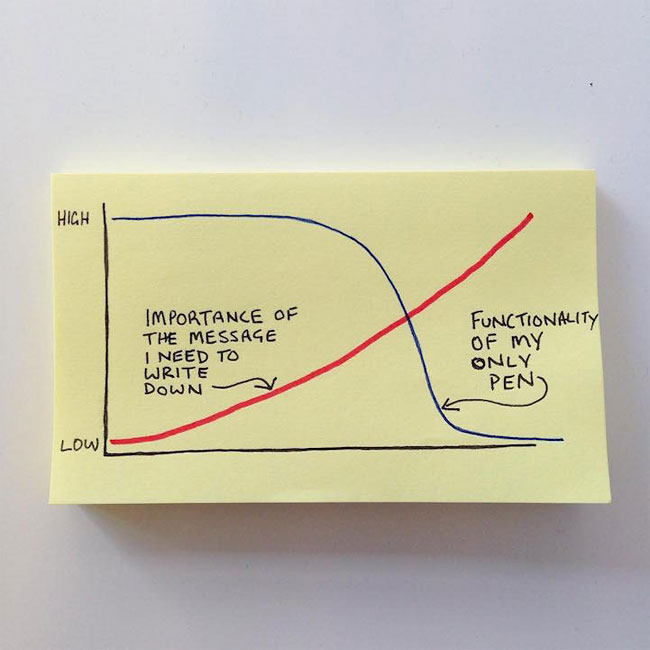 HIGH
IMPORTANCE OF
THE MESSAGE
I NEED TO
WRITE
DOWN
FUNCTIONALITY
OF MY
ONLY
PEN
LOW